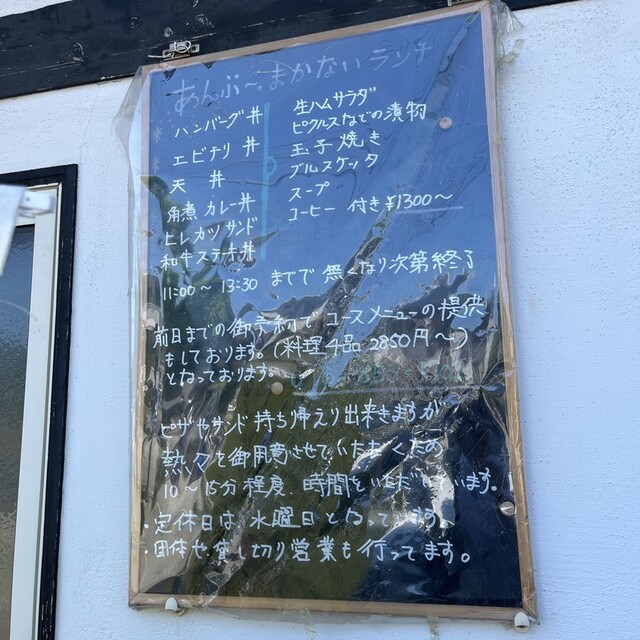 あんぷ〜まかないランチ
ハンバーグ丼
エビナリ丼
天丼
角煮カレー丼
ヒレカツサンド
和牛ステーキ丼
生ハムサラダ
ピクルスなどの漬物
玉子焼き
ブルスケッタ
スープ
コーヒー 付き¥1300〜
11:00〜13:30 までで 無くなり次第終了
前日までの御予約で コースメニューの提供
もしております。(料理4品 2850円〜)
となっております。
ピザやサンド 持ち帰り出来きますが
熱々を御用意させていただくため
10〜15分程度、時間をいただいています。
・定休日は、水曜日となってます。
・団体や貸し切り営業も行ってます。